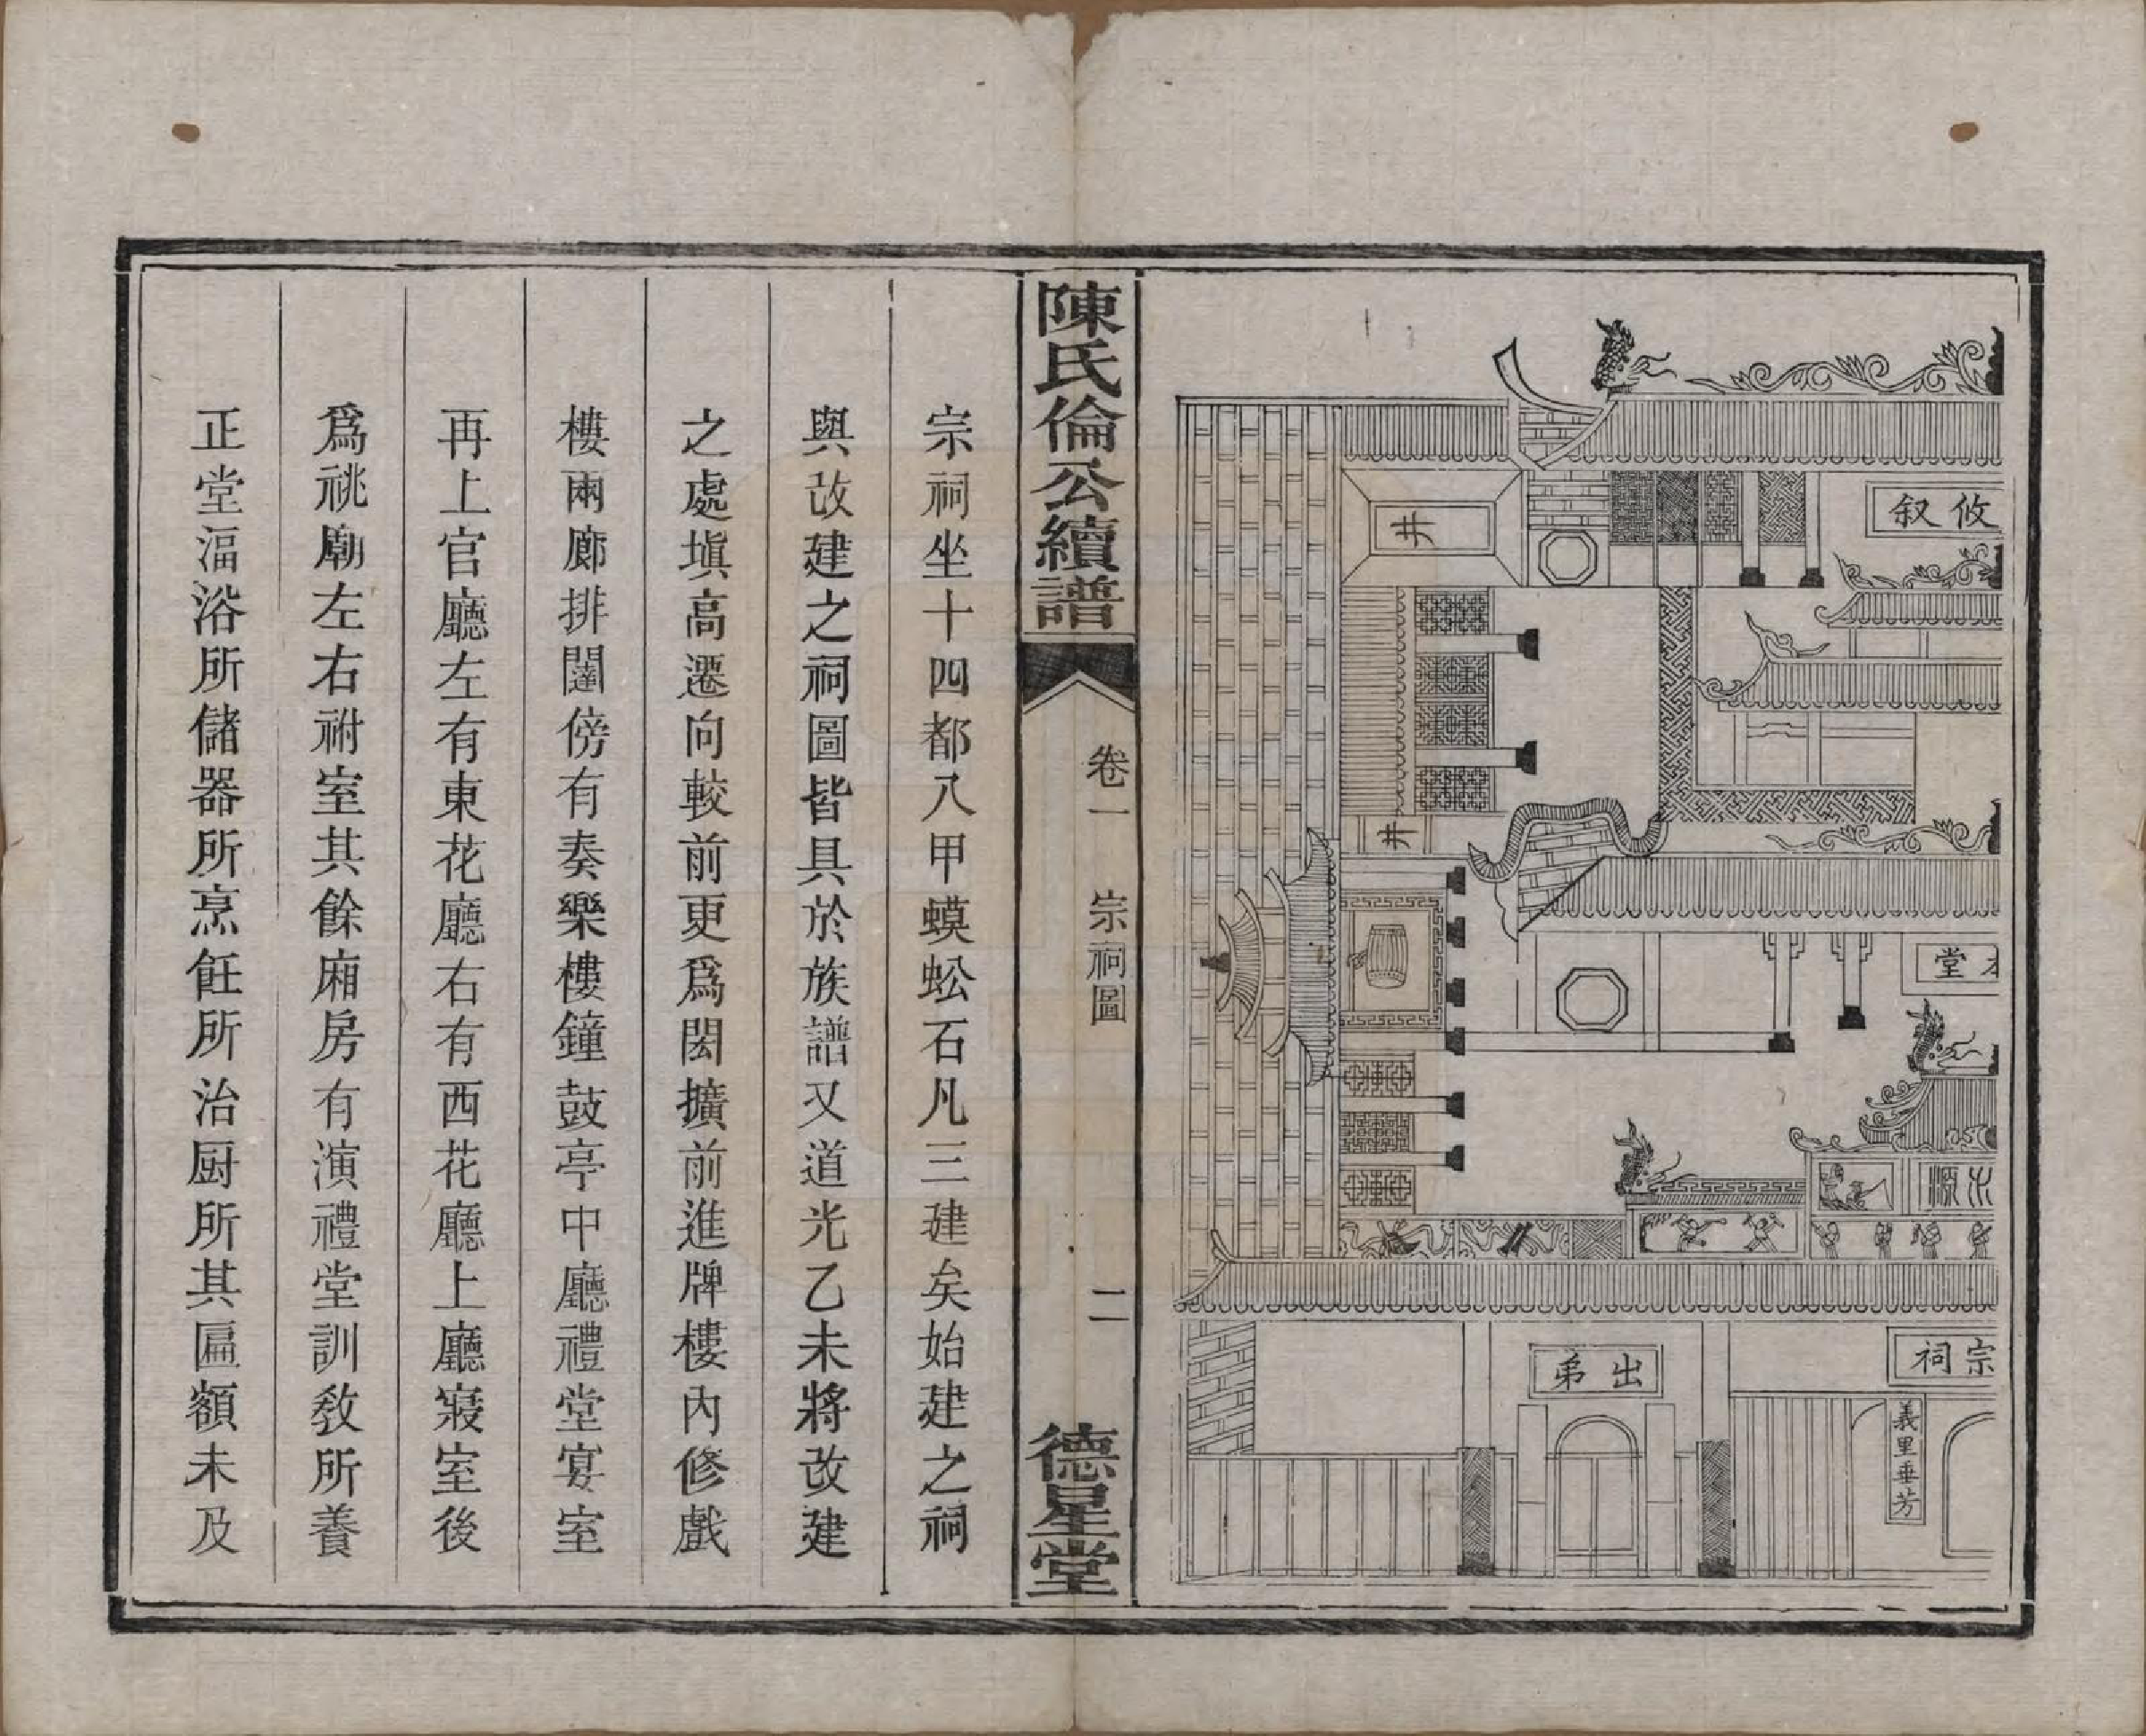 攸叙
井
井
堂
源
宗祠
出弟
義里垂芳
陳氏倫公續譜
卷一
宗祠圖
二
德星堂
宗祠坐十四都八甲蟆蚣石凡三建矣始建之祠
與改建之祠圖皆具於族譜又道光乙未將改建
之處塡高遷向較前更爲閎擴前進牌樓內修戲
樓兩廊排闥傍有奏樂樓鐘鼓亭中廳禮堂宴室
再上官廳左有東花廳右有西花廳上廳寢室後
爲祧廟左右祔室其餘廂房有演禮堂訓敎所養
正堂湢浴所儲器所烹飪所治厨所其匾額未及